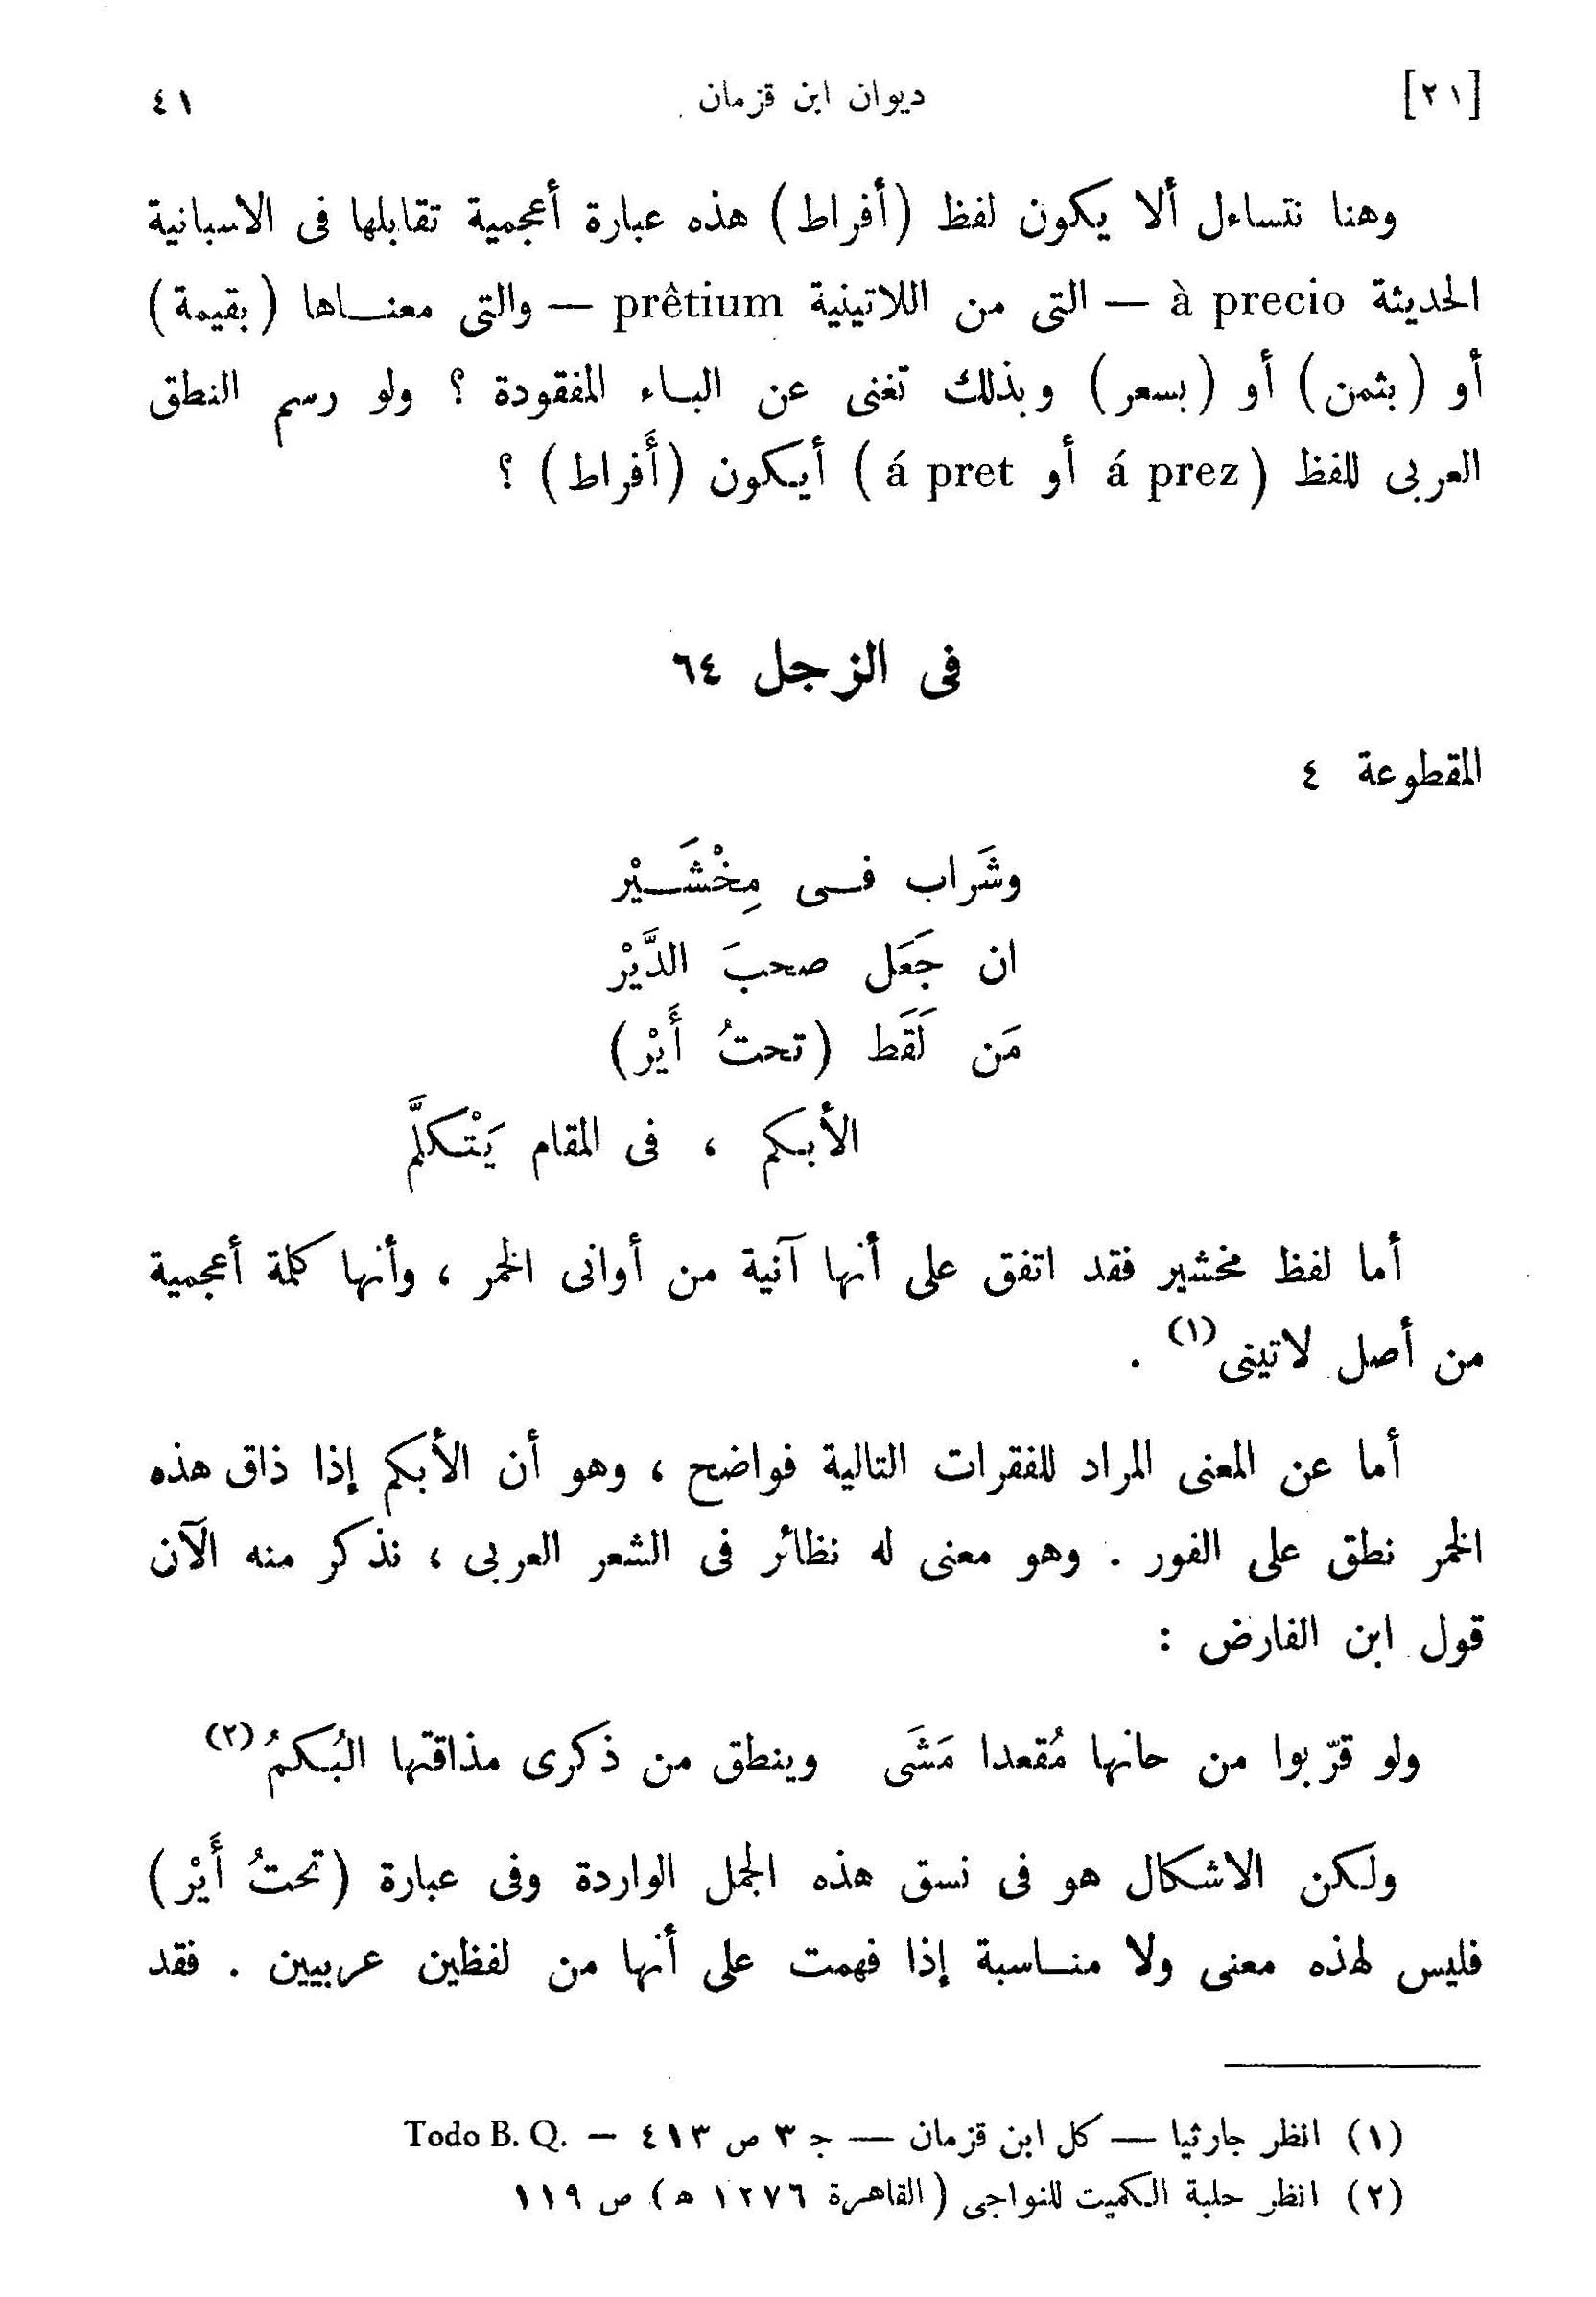 [٢١] ديوان ابن قزمان ٤١
وهنا نتساءل ألا يكون لفظ (أفراط) هذه عبارة أعجمية تقابلها فى الاسبانية
الحديثة à precio — التى من اللاتينية prêtium — والتى معنـاها (بقيمة)
أو (بثمن) أو (بسعر) وبذلك تغنى عن البـاء المفقودة ؟ ولو رسم النطق
العربى للفظ (á prez أو á pret) أيكون (أَفراط) ؟
فى الزجل ٦٤
المقطوعة ٤
وشَراب فـى مِخْشَـيْر
ان جَعَل صحبَ الدَّيْر
مَن لَقَط (تحتُ أَيْر)
الأبكم ، فى المقام يَتْكلَّم
أما لفظ مخشير فقد اتفق على أنها آنية من أوانى الخمر ، وأنها كلمة أعجمية
من أصل لاتينى(١) .
أما عن المعنى المراد للفقرات التالية فواضح ، وهو أن الأبكم إذا ذاق هذه
الخمر نطق على الفور . وهو معنى له نظائر فى الشعر العربى ، نذكر منه الآن
قول ابن الفارض :
ولو قرّبوا من حانها مُقعدا مَشَى وينطق من ذكرى مذاقتها البُكمُ(٢)
ولكن الاشكال هو فى نسق هذه الجمل الواردة وفى عبارة (تحتُ أَيْر)
فليس لهذه معنى ولا منـاسبة إذا فهمت على أنها من لفظين عربيين . فقد
(١) انظر جارثيا — كل ابن قزمان — ج ٣ ص ٤١٣ — Todo B. Q.
(٢) انظر حلبة الكميت للنواجى (القاهرة ١٢٧٦ ه) ص ١١٩